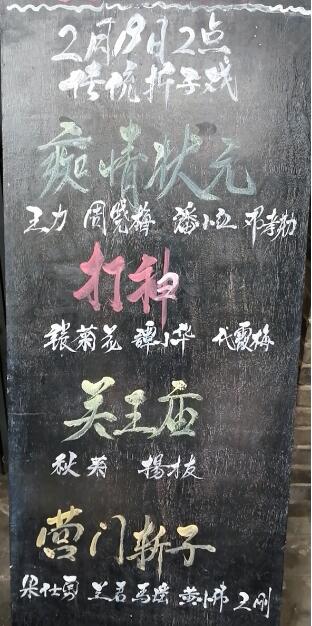 2月19日2点
传统折子戏
痴情状元
王力 周凳梅 潘小红 邓孝勤
打神
張菊花 譚小华 代霞梅
关王庙
秋菊 揚枝
营门斩子
梁仕勇 兰君 馬瑶 黄小伟 王刚